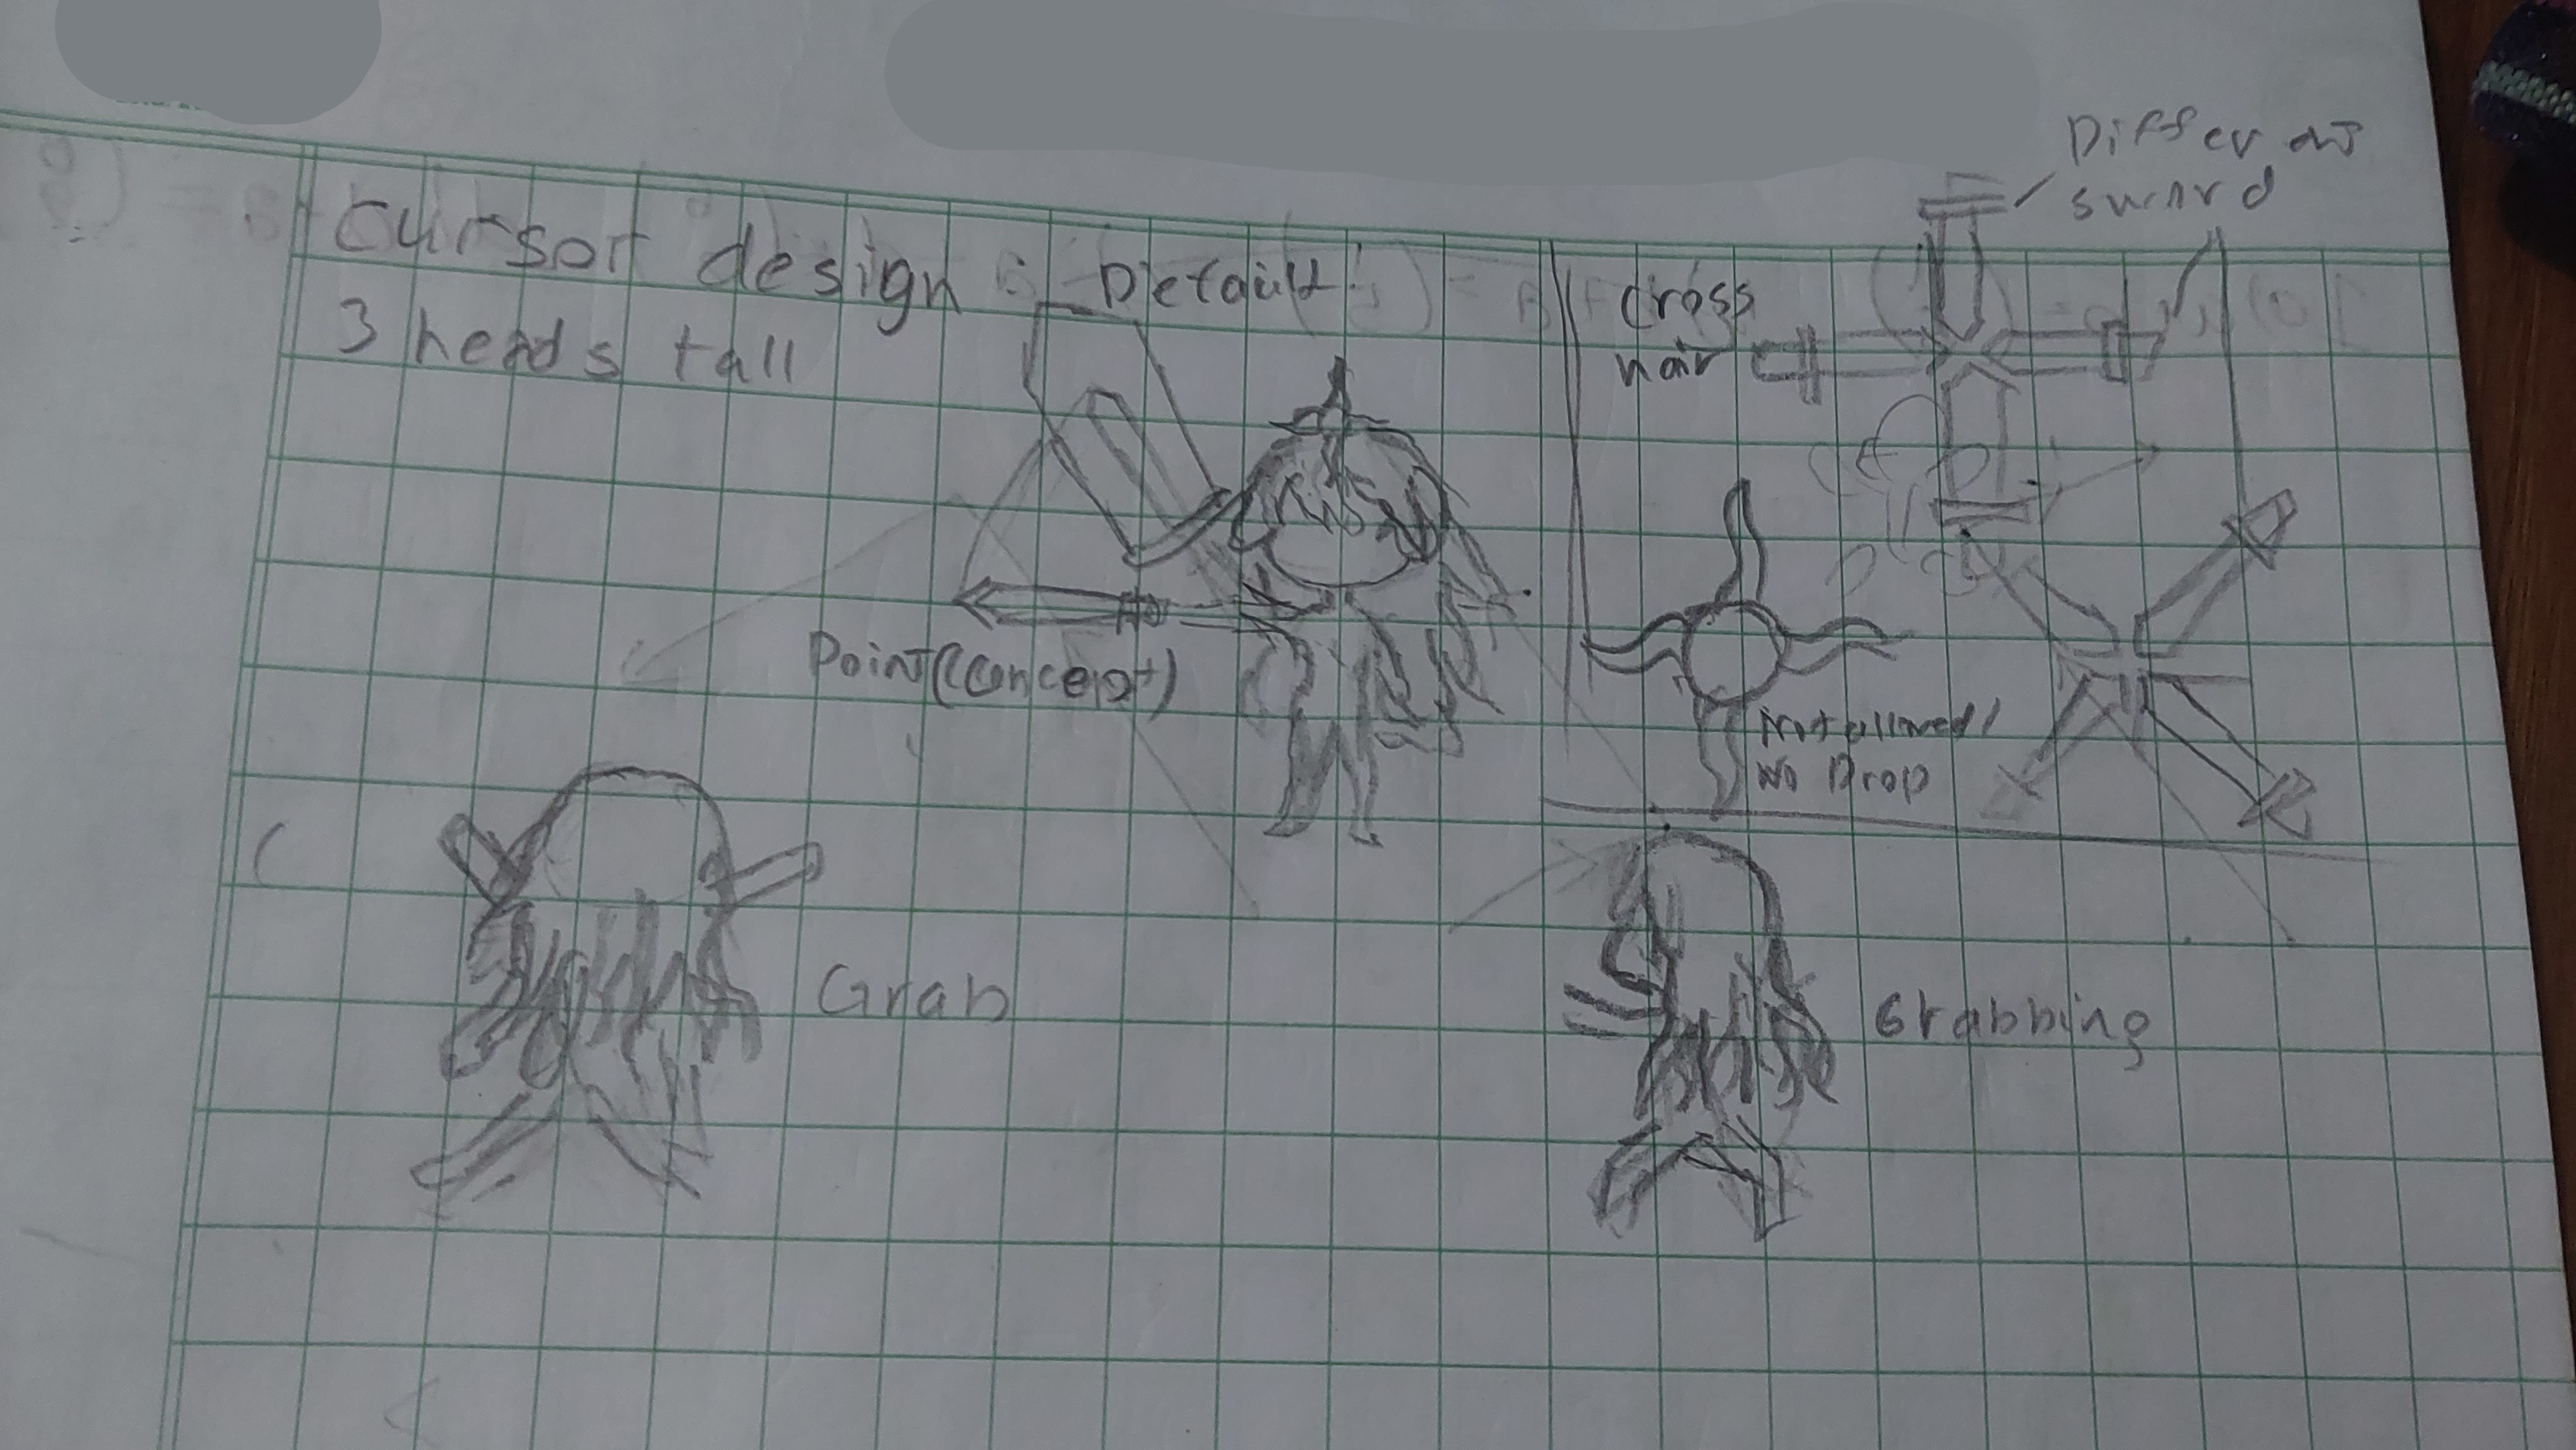 cursor design : Default
3 heads tall
Point (concept)
Cross
hair
Different
sword
Not allowed/
No Drop
Grab
Grabbing